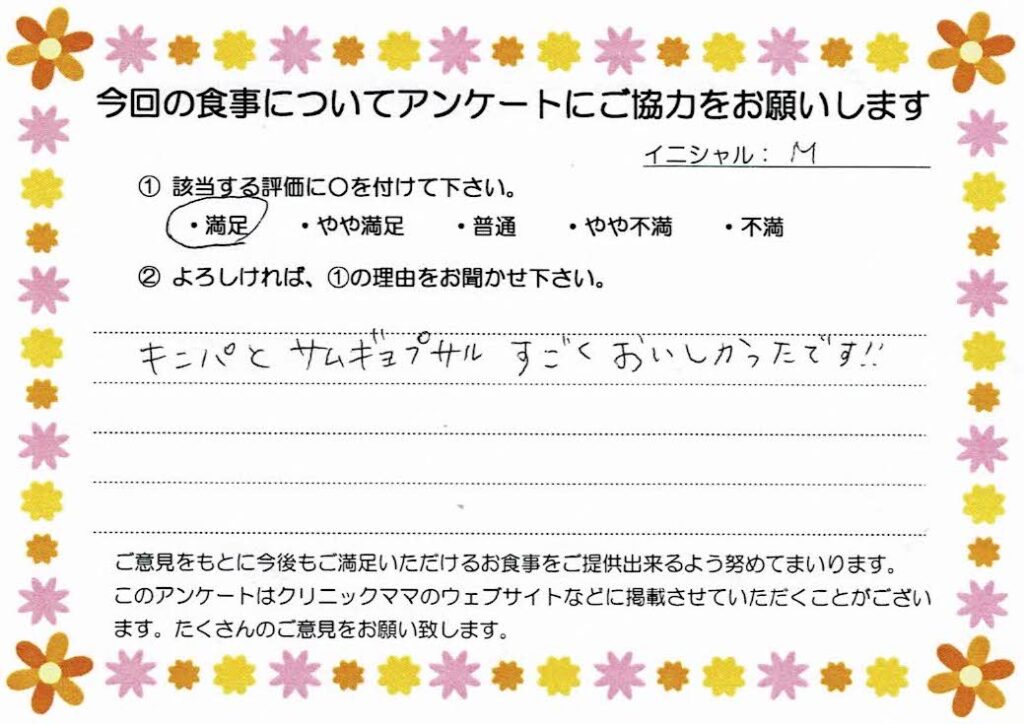 今回の食事についてアンケートにご協力をお願いします
イニシャル： M
① 該当する評価に〇を付けて下さい。
・満足 ・やや満足 ・普通 ・やや不満 ・不満
② よろしければ、①の理由をお聞かせ下さい。
キンパと サムギョプサル すごく おいしかったです!!
ご意見をもとに今後もご満足いただけるお食事をご提供出来るよう努めてまいります。
このアンケートはクリニックママのウェブサイトなどに掲載させていただくことがござい
ます。たくさんのご意見をお願い致します。